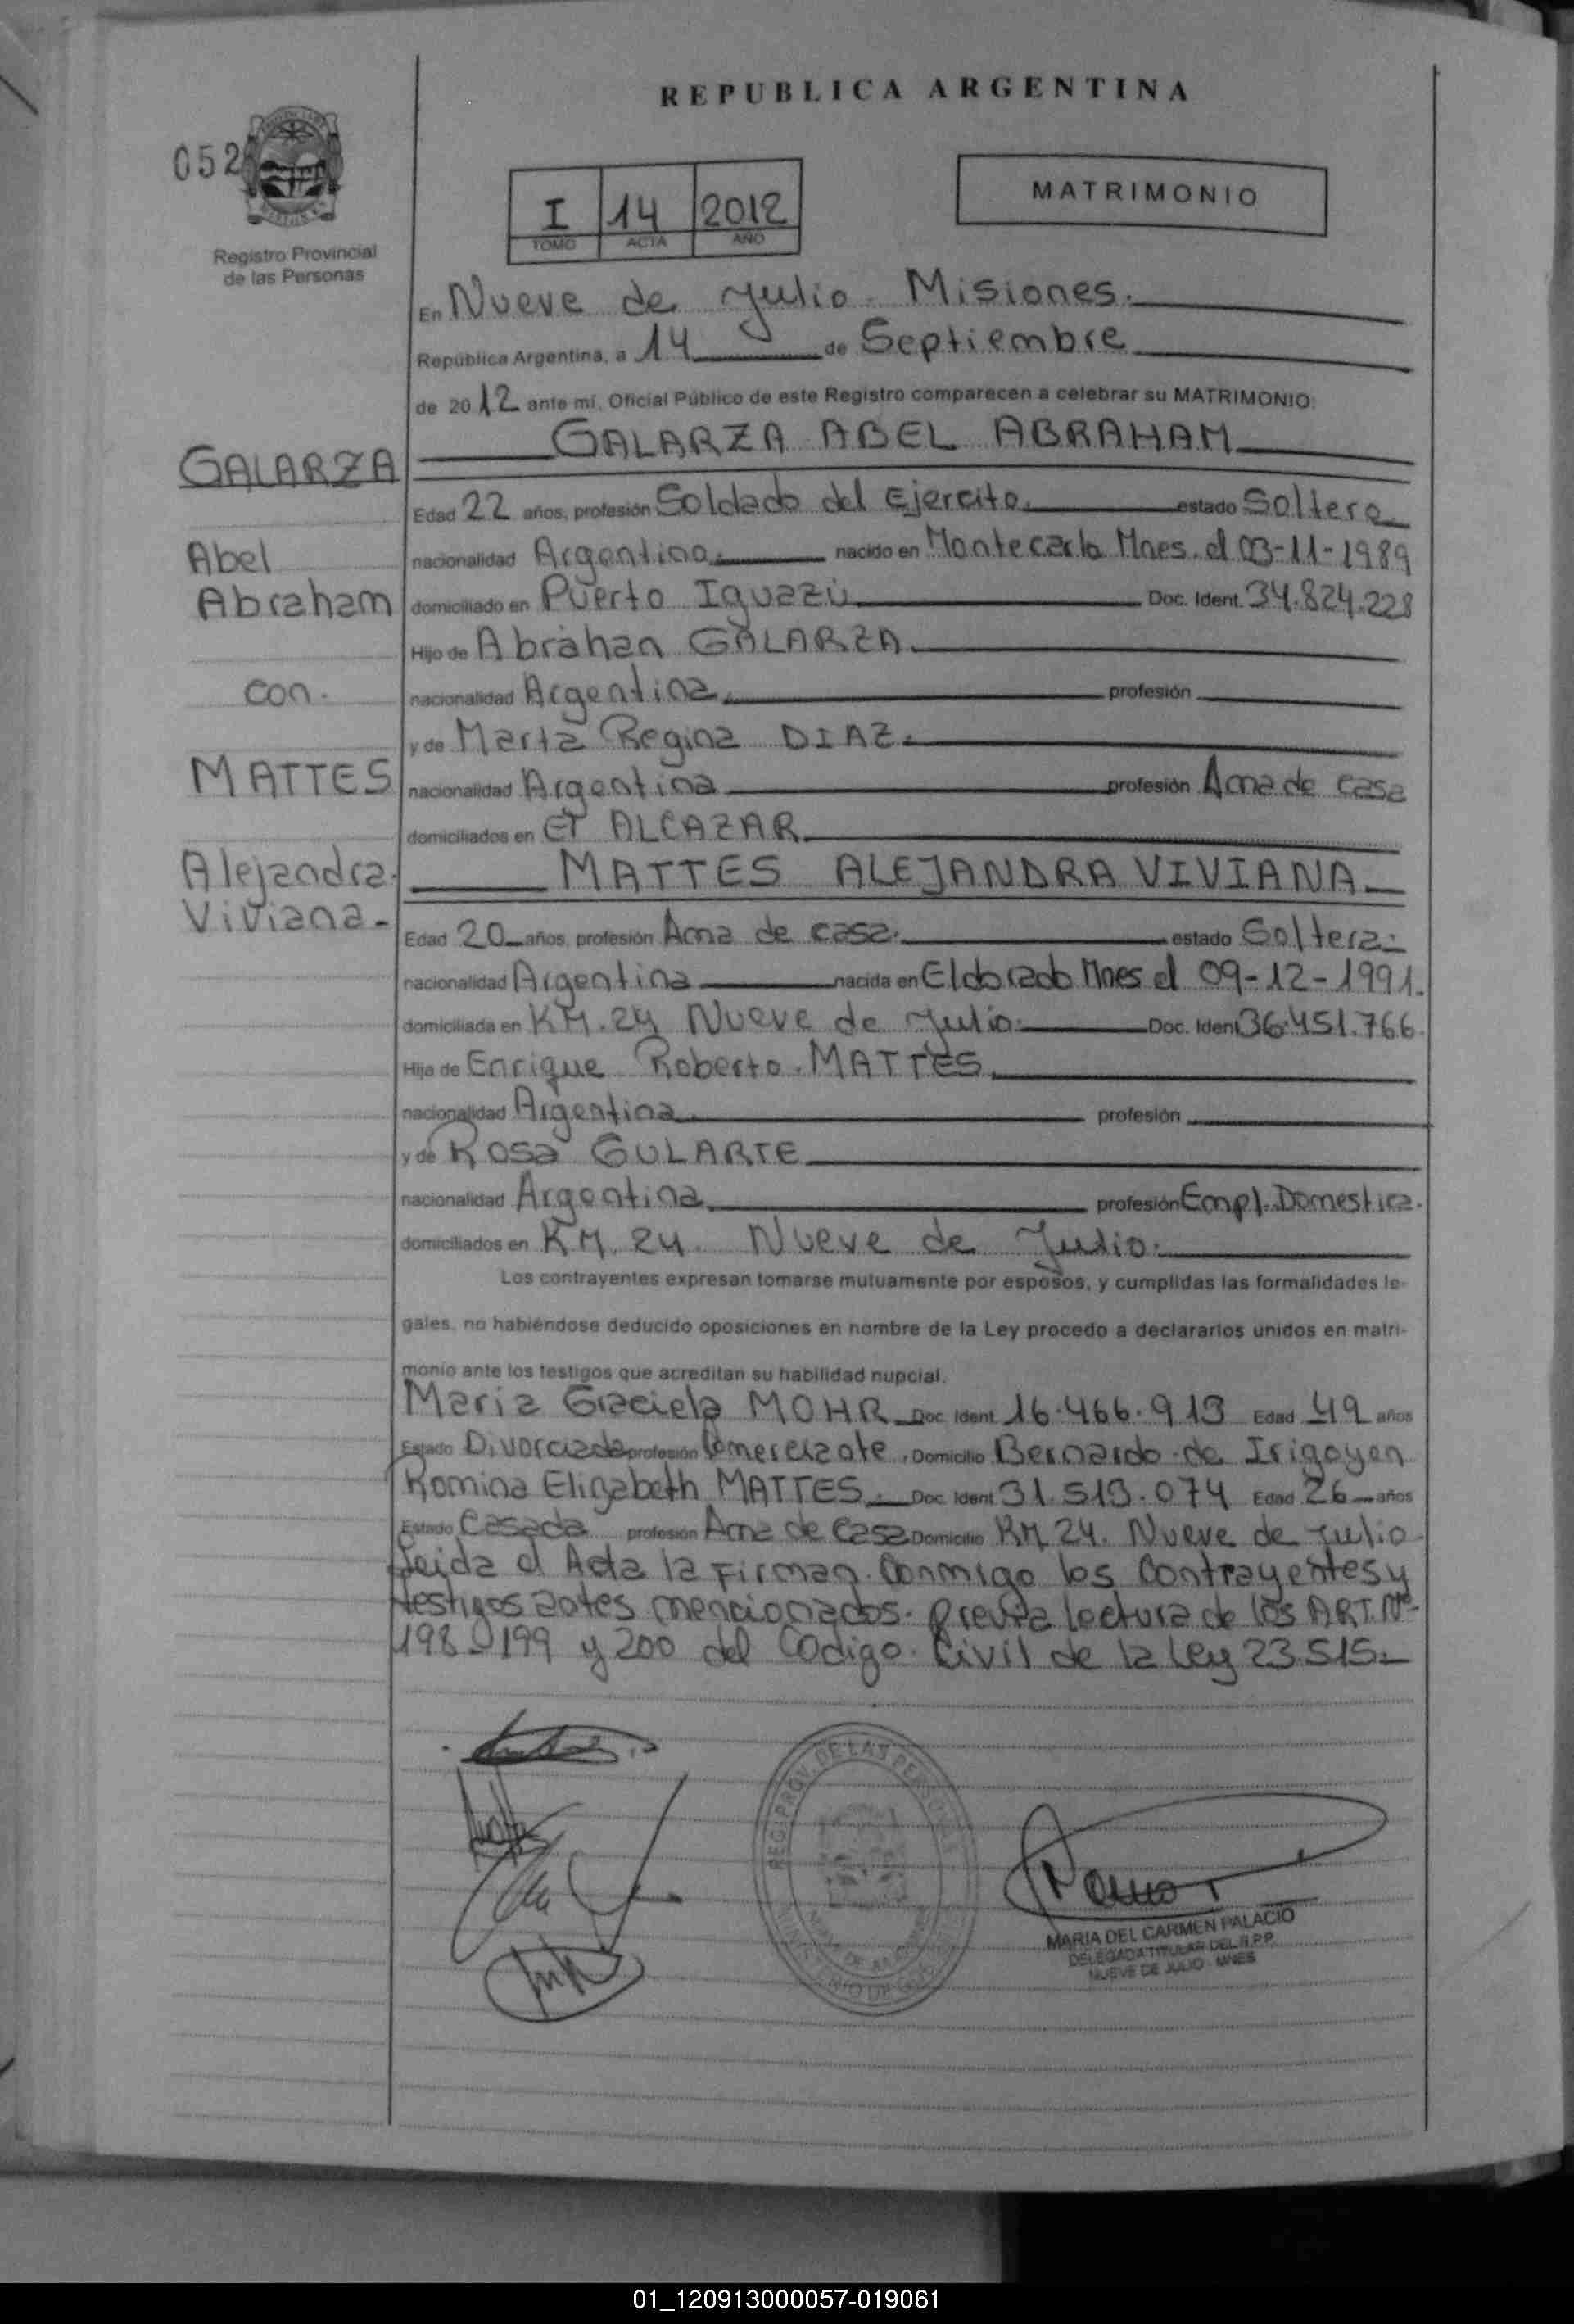 REPUBLICA ARGENTINA
052
Registro Provincial
de las Personas
I 14 2012
TOMO ACTA AÑO
MATRIMONIO
En Nueve de Julio. Misiones.
República Argentina, a 14 de Septiembre
de 2012 ante mí, Oficial Público de este Registro comparecen a celebrar su MATRIMONIO:
GALARZA ABEL ABRAHAM
GALARZA
Abel
Abraham
con.
MATTES
Alejandra.
Viviana.-
Edad 22 años, profesión Soldado del Ejercito. estado Soltero.
nacionalidad Argentino. nacido en Montecarlo Mnes. el 03-11-1989
domiciliado en Puerto Iguazú Doc. Ident. 34.824.228
Hijo de Abrahan GALARZA.
nacionalidad Argentina. profesión
y de Marta Regina DIAZ.
nacionalidad Argentina profesión Ama de casa
domiciliados en El ALCAZAR.
MATTES ALEJANDRA VIVIANA
Edad 20 años, profesión Ama de casa. estado Soltera.-
nacionalidad Argentina nacida en Eldorado Mnes el 09-12-1991.
domiciliada en KM. 24 Nueve de Julio. Doc. Ident 36.451.766.
Hija de Enrique Roberto. MATTES.
nacionalidad Argentina. profesión
y de Rosa GULARTE
nacionalidad Argentina. profesión Empl. Domestica.
domiciliados en KM. 24. Nueve de Julio.
Los contrayentes expresan tomarse mutuamente por esposos, y cumplidas las formalidades le-
gales, no habiéndose deducido oposiciones en nombre de la Ley procedo a declararlos unidos en matri-
monio ante los testigos que acreditan su habilidad nupcial.
Maria Graciela MOHR Doc. Ident. 16.466.913 Edad 49 años
Estado Divorciada profesión Comerciante, Domicilio Bernardo de Irigoyen
Romina Elizabeth MATTES. Doc. Ident 31.513.074 Edad 26 años
Estado Casada profesión Ama de Casa Domicilio KM 24. Nueve de Julio.
Leida el Acta la Firman. Conmigo los Contrayentes y
testigos antes mencionados. Previa lectura de los ART. Nº
198-199 y 200 del Codigo. Civil de la Ley 23.515.-
REG. PROV. DE LAS PERSONAS
MARIA DEL CARMEN PALACIO
DELEGADA TITULAR DEL R.P.P.
NUEVE DE JULIO - MNES
01_120913000057-019061